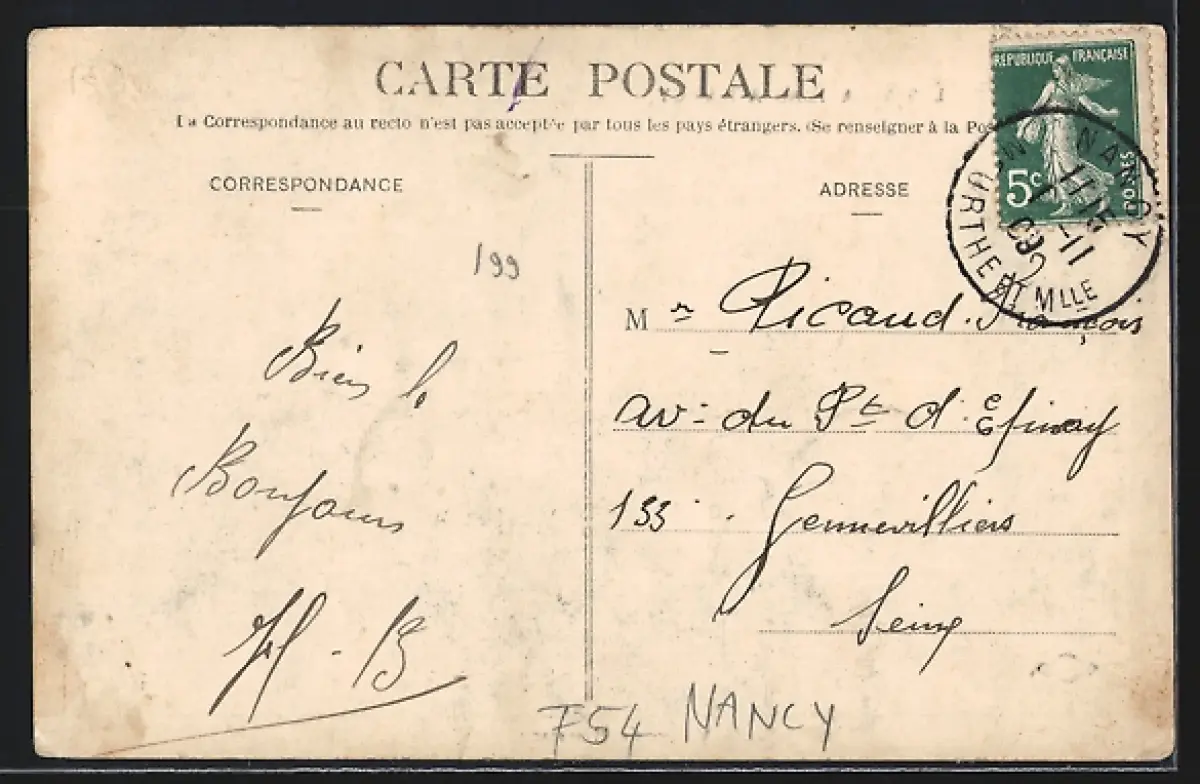 CARTE POSTALE
La Correspondance au recto n'est pas acceptée par tous les pays étrangers. (Se renseigner à la Pos
REPUBLIQUE FRANÇAISE
5c
POSTES
NANCY
MEURTHE ET MLLE
CORRESPONDANCE
ADRESSE
199
Bien le
Bonjour
H-B
Mr Ricaud. François
av: du Pt d'Epinay
133. Gennevilliers
Seine
F54 NANCY